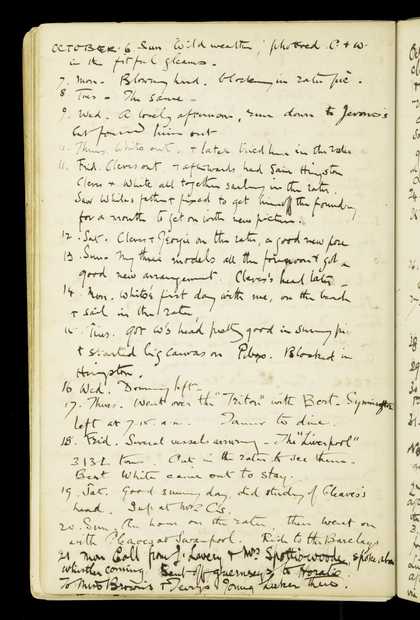 OCTOBER. 6 Sun. Wild weather, photoed C + W
in the fitful gleams.
7. Mon. Blowing hard. blocking in water pic.
8 Tues - The same -
9. Wed. A lovely afternoon, run down to Jevons's
but found him out
Thurs. White out. + later tried him in the water
11. Fri. Cleves out + afterwards had Sain Hingston
Cleves + White all together sailing in the water.
Saw White's father + fixed to get him off the foundry
for a month to get on with new picture.
12. Sat. Cleves + Georgie on the water, a good new pose
13. Sun. My three models all the forenoon + got a
good new arrangement. Cleves's head later -
14 Mon. White's first day with me, on the beach
+ sail in the water
15. Tues. got W's head pretty good in sunny pic
+ started big canvas on Blocked in
Hingston.
16 Wed. left -
17. Thurs. Went over the "Triton" with Bert - Symington
left at 7.15 a.m. to dine.
18. Frid. Several vessels arriving - The "Liverpool"
3132 tons. Out in the water to see them.
Bert White came out to stay.
19. Sat. Good sunny day. did study of Cleaves's
head.
20. Sun. the hour on the water, then went on
with at Swanpool. Rid to the Barclays
21. Mon Call from J. Lavery + Mrs Spottiswoode, spoke abt
Whistler coming Sent off guernseys to Horatio
To Miss Brown's + George Young Tucker there.